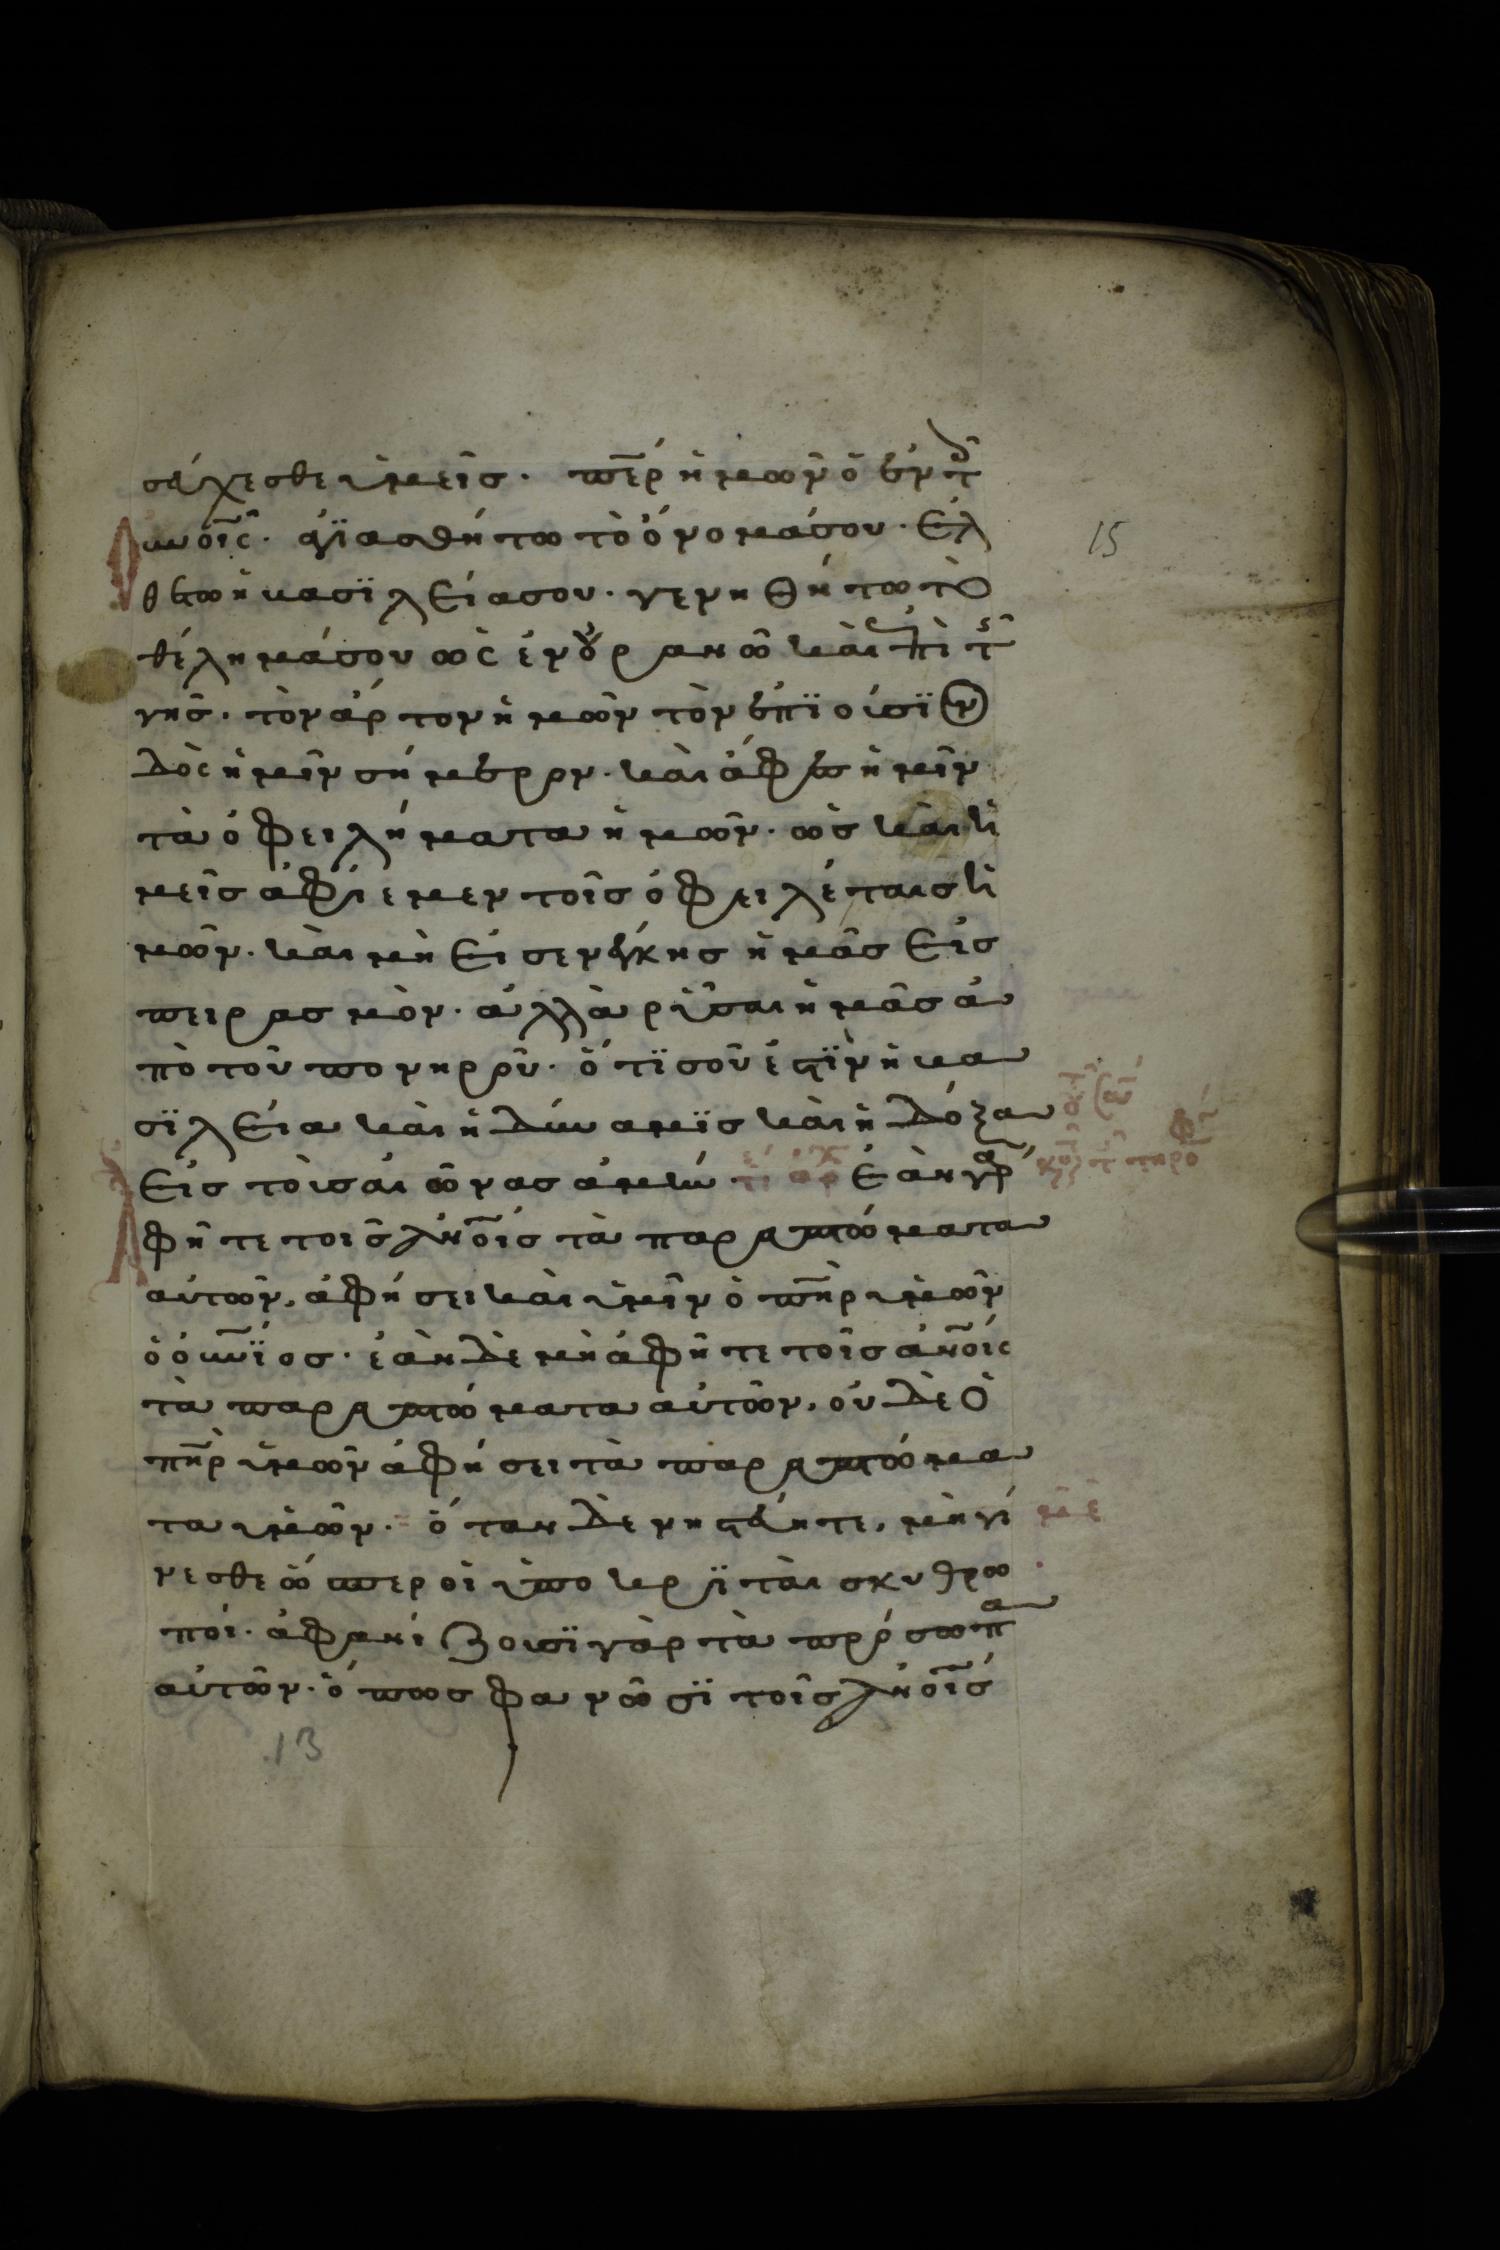 σεύχεσθε ὑμεῖς. περ ἡμῶν ὁ ἐν τ
οὐνοῖς. ἁγϊασθήτω τὸ ὄνομά σου. ἐλ
15
θέτω ἡ βασϊλεία σου. γενηθήτω τὸ
θέλημά σου ὡς ἐν οὐρανῶ καὶ ἐπὶ τ
γῆς. τὸν ἄρτον ἡμῶν τὸν ἐπϊούσϊον
δὸς ἡμῖν σήμερον. καὶ ἄφες ἡμῖν
τὰ ὀφειλήματα ἡμῶν. ὡς καὶ ἡ
μεῖς ἀφίεμεν τοῖς ὀφειλέταις ἡ
μῶν. καὶ μὴ εἰσενέγκης ἡμᾶς εἰς
πειρασμὸν. ἀλλὰ ρῦσαι ἡμᾶς ἀ
πὸ τοῦ πονηροῦ. ὅτϊ σοῦ ἐστϊν ἡ βα
σϊλεία καὶ ἡ δύναμϊς καὶ ἡ δόξα
εἰς τοὺς αἰῶνας ἀμήν. ἐὰν γὰρ ἀ
φῆτε τοῖς ἀνοῖς τὰ παραπτώματα
αὐτῶν, ἀφήσει καὶ ὑμῖν ὁ πηρ ὑμῶν
ὁ οὐνϊος. ἐὰν δὲ μὴ ἀφῆτε τοῖς ἀνοῖς
τὰ παραπτώματα αὐτῶν, οὐδὲ ὁ
πηρ ὑμῶν ἀφήσει τὰ παραπτώμα
τα ὑμῶν. ὅταν δὲ νηστεύητε, μὴ γί
νεσθε ὥσπερ οἱ ὑποκρϊταὶ σκυθρω
ποί. ἀφανίζουσϊ γὰρ τὰ πρόσωπα
αὐτῶν. ὅπως φανῶσϊ τοῖς ἀνοῖς
13